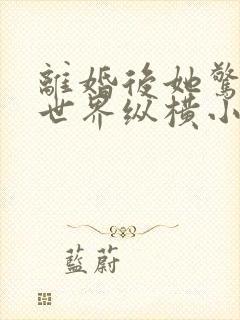 離婚後她驚
世界纵橫小
藍蔚